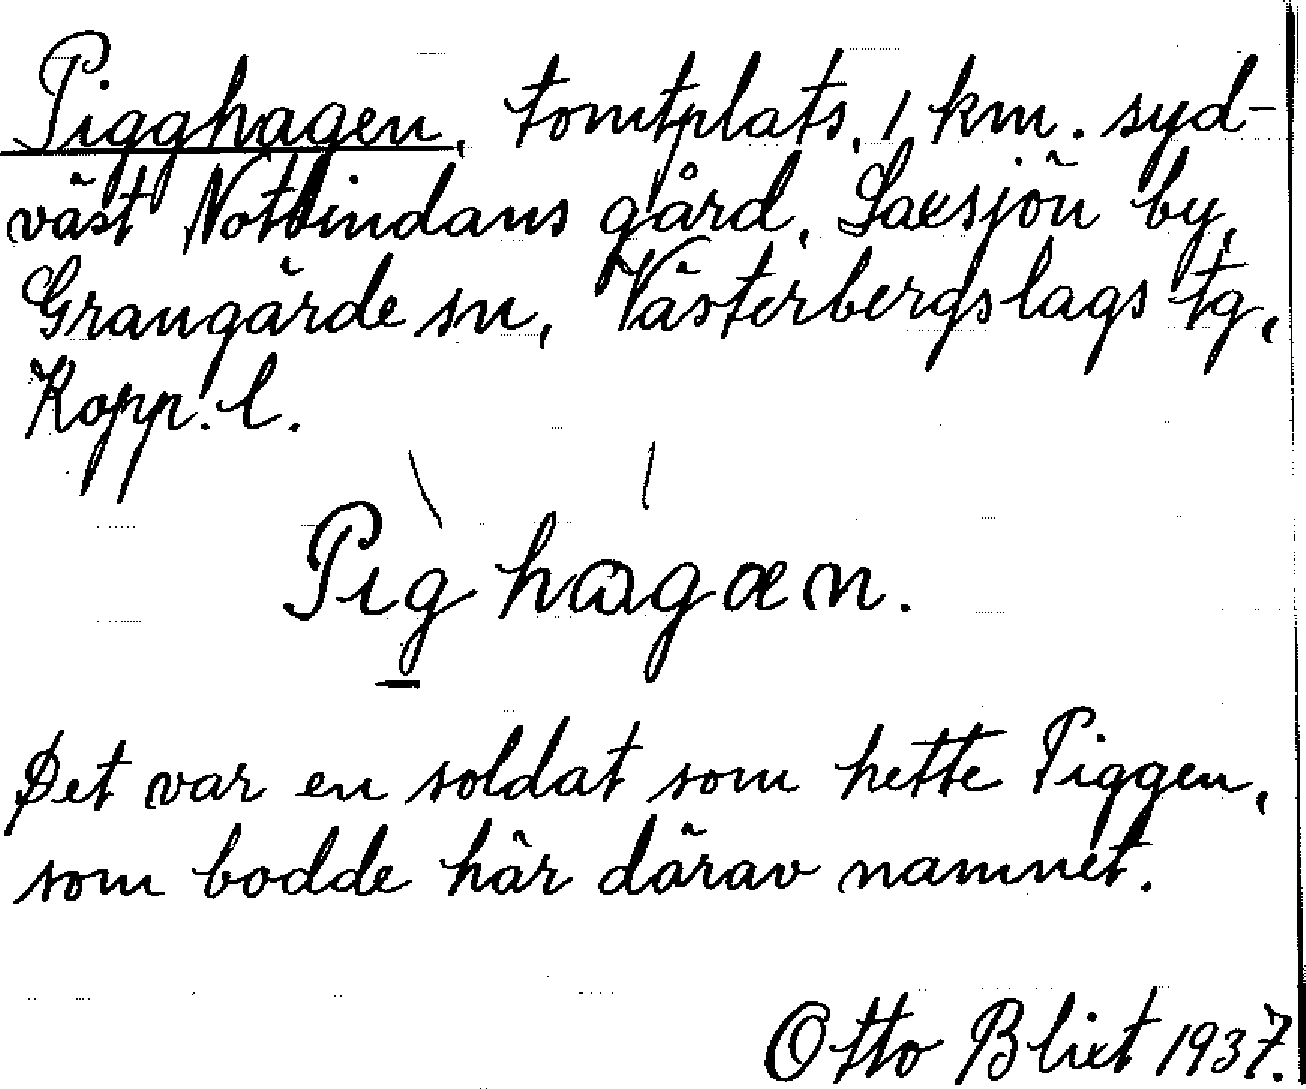 Pigghagen, tomtplats, 1 km. syd-
väst Notbindans gård, Saxsjön by,
Grangärde sn, Västerbergslags tg,
Kopp. l.
Pighagæn.
Det var en soldat som hette Piggen,
som bodde här därav namnet.
Otto Blixt 1937.